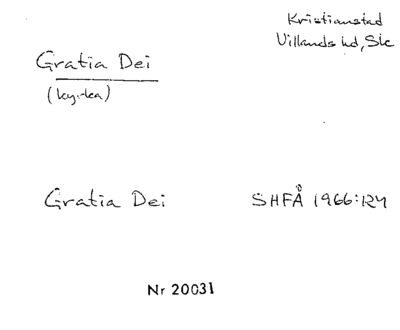 Kristianstad
Villands hd, Sk
Gratia Dei
(kyrka)
Gratia Dei SHFÅ 1966:124
Nr 20031